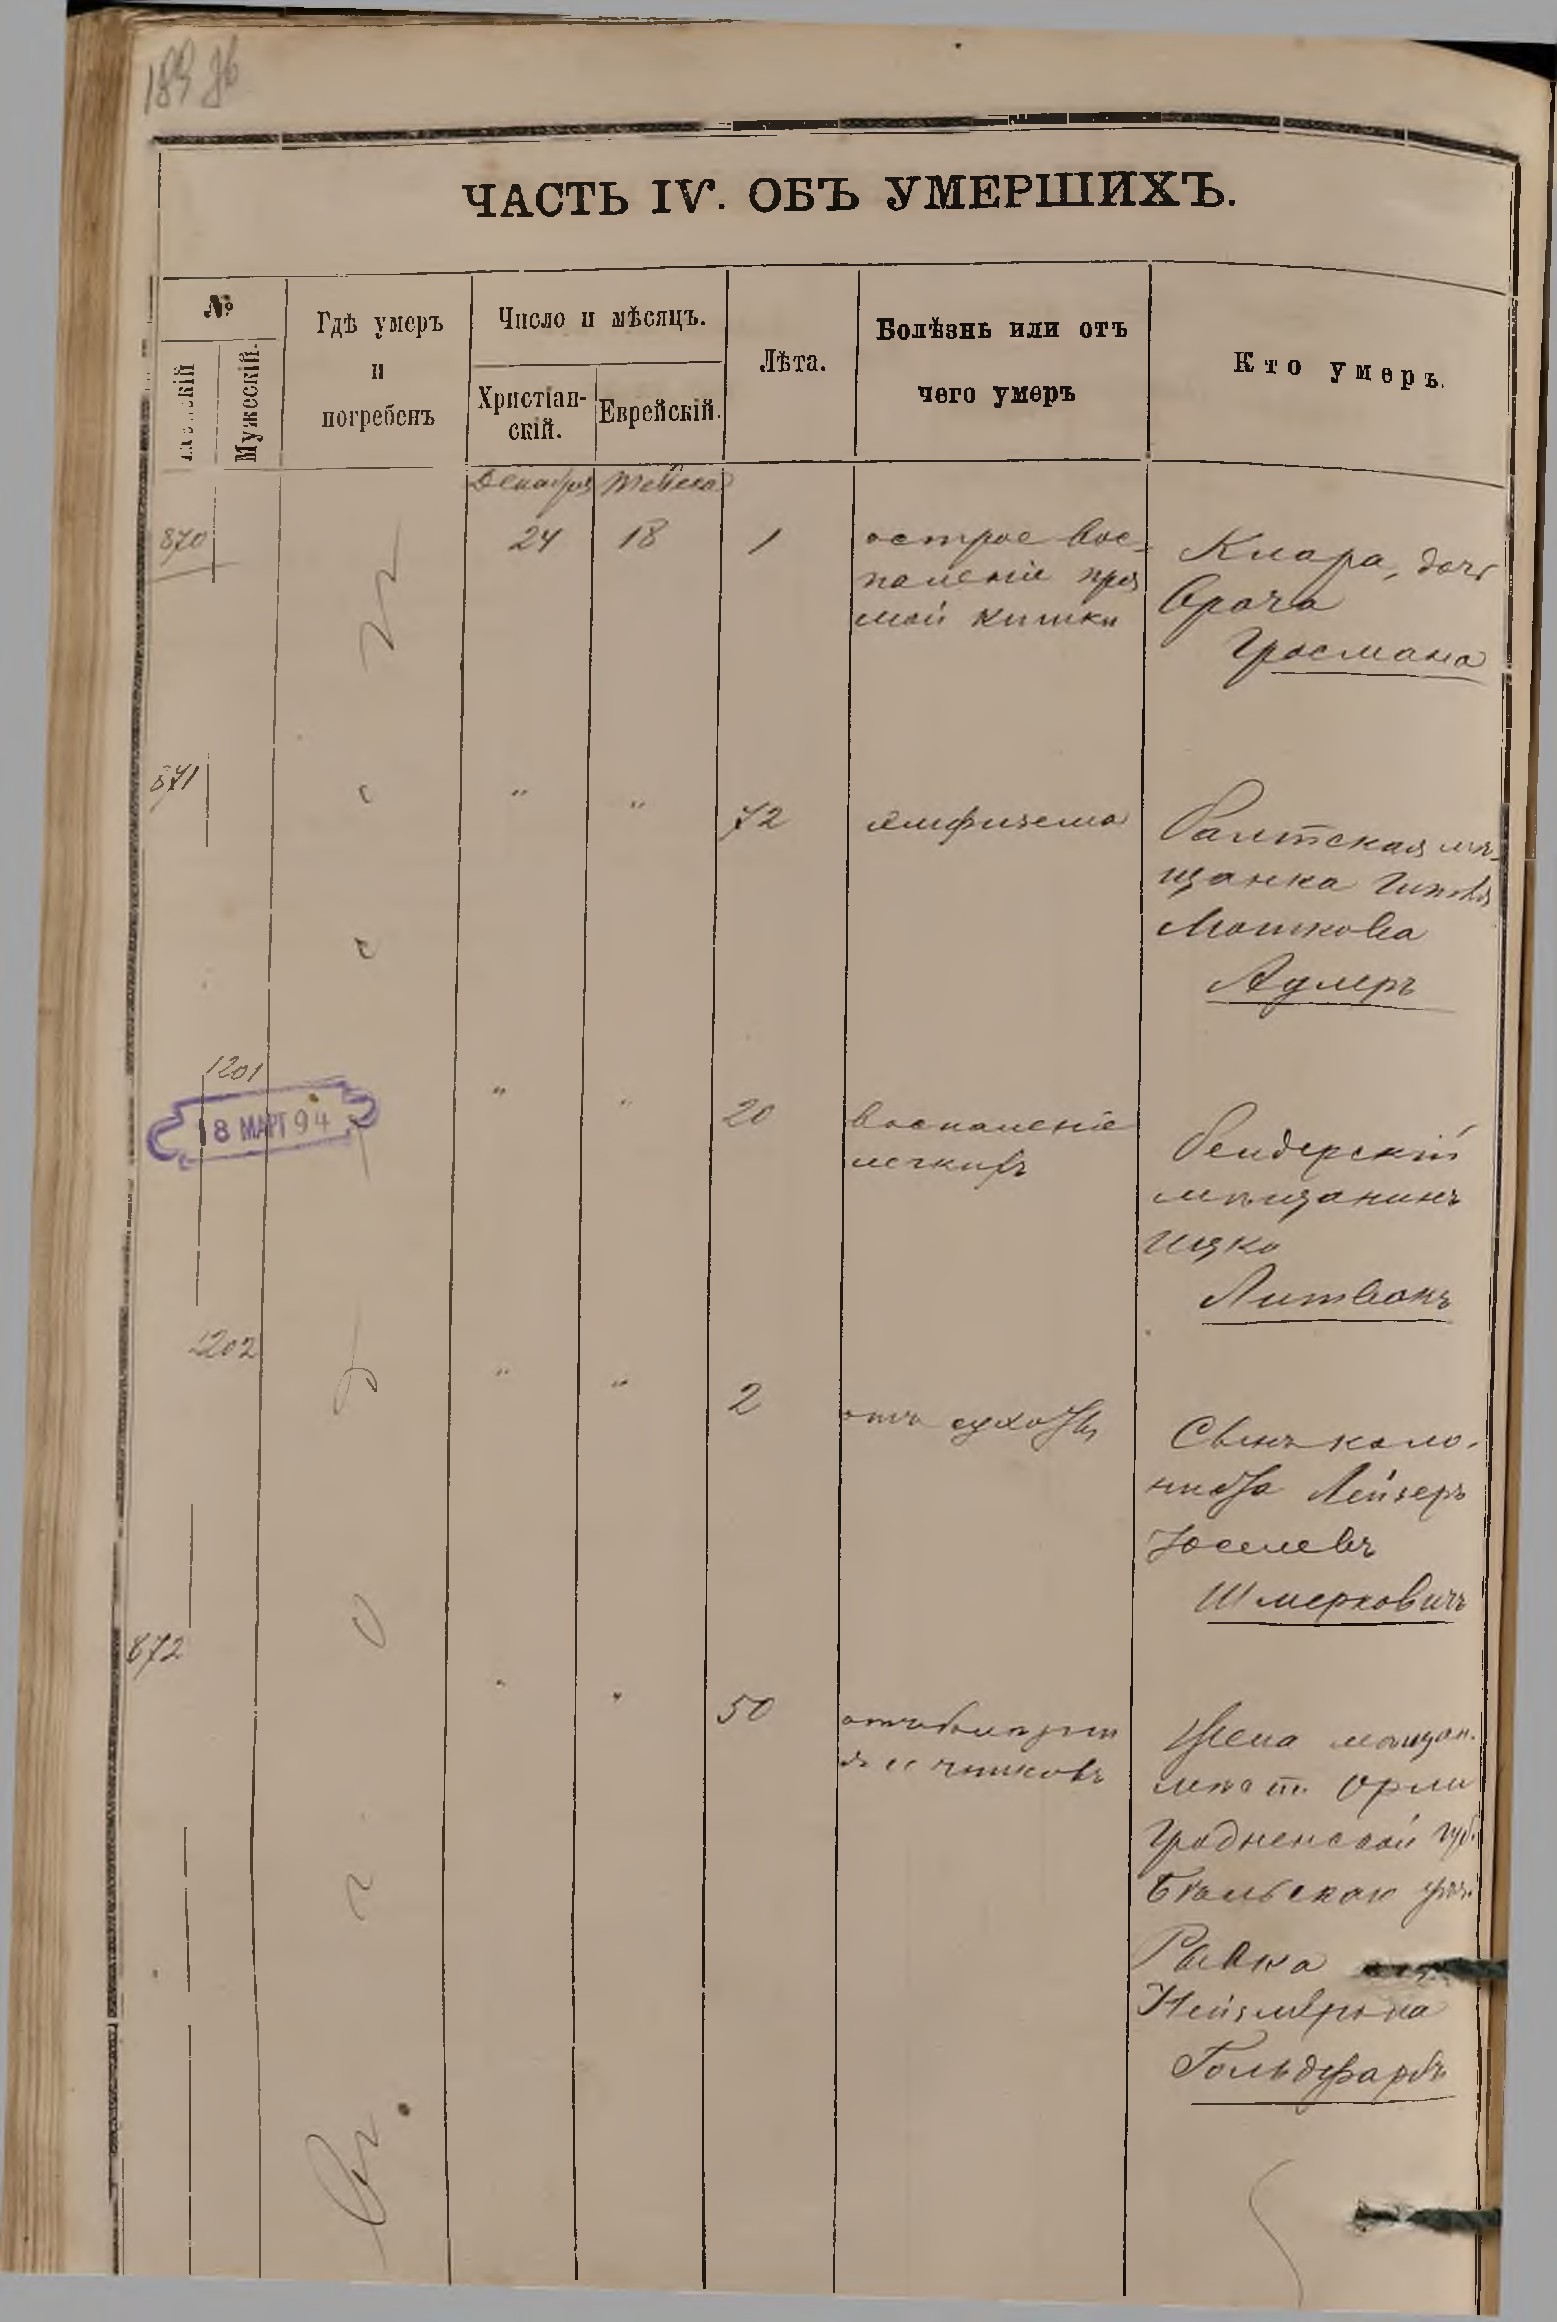 ЧАСТЬ IV. ОБЪ УМЕРШИХЪ.
№
Женскій
Мужескій.
Гдѣ умеръ
и
погребенъ
Число и мѣсяцъ.
Христіан-
скій.
Еврейскій.
Лѣта.
Болѣзнь или отъ
чего умеръ
Кто умеръ.
Декабря Тевеса
870 24 18 1
острое вос-
паленіе пря
мой кишки
Клара, дочь
врача
Гросмана
871 " " 72
эмфизема
Балтская мѣ-
щанка
Мошкова
Адлеръ
1201 " " 20
18 МАРТ 94
воспаленіе
легкихъ
Бендерскій
мѣщанинъ
Ицко
Литвакъ
1202 " " 2
отъ сухотки
Сынъ коло-
ниста Лейзеръ
Іоселевъ
Шмерковичъ
872 " " 50
яичниковъ
Жена мѣщан.
мѣст. Орли
Гродненской губ.
Бѣльскаго уѣз.
Рывка
Гольдфарбъ